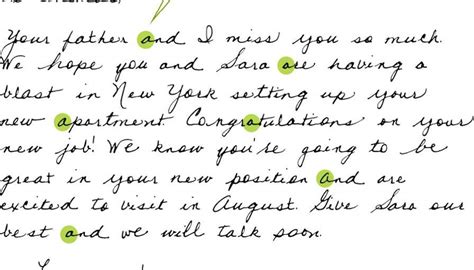 Your father and I miss you so much.
We hope you and Sara are having a
blast in New York setting up your
new apartment Congratulations on your
new job! We know you're going to be
great in your new position and are
excited to visit in August. Give Sara our
best and we will talk soon.